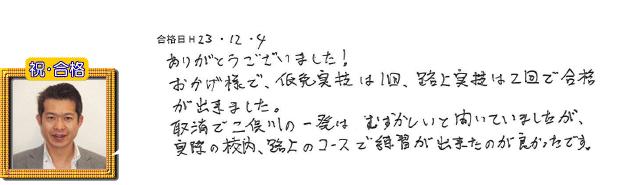 合格日 H 23・12・4
祝・合格
ありがとうございました!
おかげ様で、仮免実技は1回、路上実技は2回で合格
が出来ました。
取消で二俣川の一発は むずかしいと聞いていましたが、
実際の校内、路上のコースで練習が出来たのが良かったです。